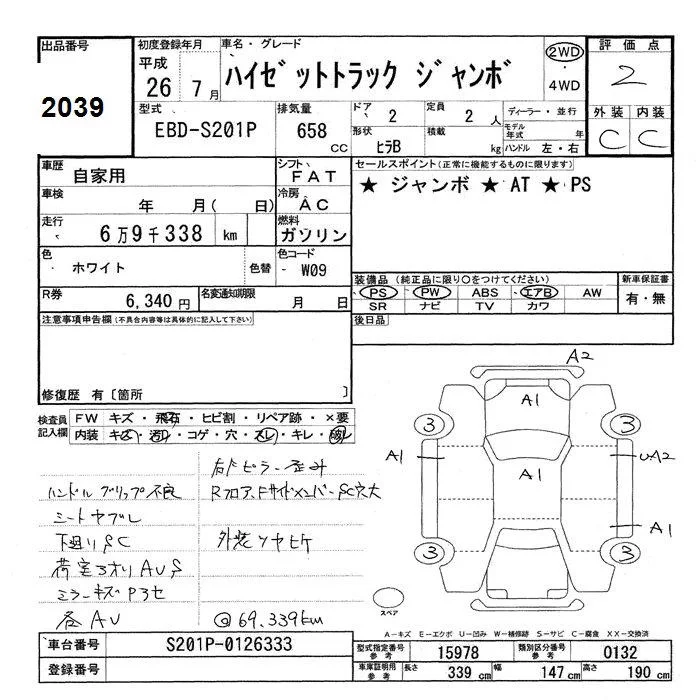 出品番号 初度登録年月 車名・グレード 評価点
2039
平成 26年 7月
ハイゼットトラック ジャンボ
2WD
・
4WD
2
型式 排気量 ドア 定員 ディーラー・並行 外装 内装
EBD-S201P 658 CC
2 2人
形状 ヒラB 積載 kg
モデル年式 年
ハンドル 左・右
C C
車歴 自家用
シフト FAT
セールスポイント(正常に機能するものに限ります)
★ ジャンボ ★ AT ★ PS
車検 年 月( 日)
冷房 AC
走行 6万9千338 km
燃料 ガソリン
色 ホワイト 色替
色コード W09
装備品 (純正品に限り○をつけてください) 新車保証書
PS PW ABS エアB AW
SR ナビ TV カワ
有・無
R券 6,340円
名変通知期限 月 日
注意事項申告欄(不具合内容等は具体的に記入して下さい)
後日品
修復歴 有〔箇所 〕
検査員記入欄
FW キズ・飛石・ヒビ割・リペア跡・×要
内装 キズ・汚れ・コゲ・穴・スレ・キレ・破レ
右Fピラー歪み
ハンドルグリップ不良
RフロアFサイドメンバーSC穴大
シートヤブレ
下廻りSC
外装ツヤヒケ
荷室3オリAUS
ミラーキズPヨセ
各AU
@69,339km
A2
A1
3 3
A1 A1 UA2
A1
3 3
スペア
A-キズ E-エクボ U-凹み W-補修跡 S-サビ C-腐食 XX-交換済
車台番号 S201P-0126333
型式指定番号参考 15978 類別区分番号参考 0132
登録番号
車庫証明用参考 長さ 339 cm 幅 147 cm 高さ 190 cm